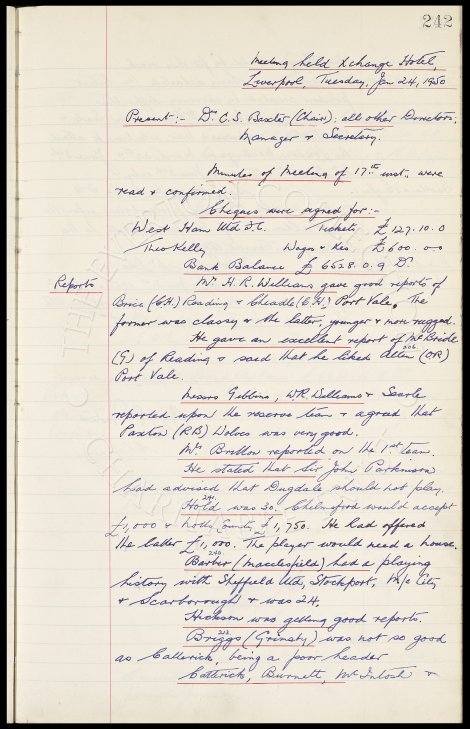 242
Meeting held Xchange Hotel,
Liverpool, Tuesday, Jan 24, 1950
Present:- Dr. C.S. Baxter (Chair); all other Directors;
Manager & Secretary.
Minutes of Meeting of 17th inst. were
read & confirmed.
Cheques were signed for:-
West Ham Utd F.C. Tickets £127.10.0
Theo Kelly Wages & £600.0.0
Bank Balance £6528.0.9 D.
Reports
Mr. H.R. Williams gave good reports of
(C.H.) Reading & Cheadle (C.H.) Port Vale. The
former was classy & the latter, younger & more rugged.
He gave an excellent report of McBride
(G) of Reading & said that he liked Allen (OR)
206
Port Vale.
Messrs Gibbins, W.R. Williams & Searle
reported upon the reserve team & agreed that
Paxton (RB) Wolves was very good.
Mr. Britton reported on the 1st team.
He stated that Sir John Parkinson
had advised that Dugdale should not play.
241
Hold was 30. Chelmsford would accept
£1,000 & Notts County £1,750. He had offered
the latter £1,000. The player would need a house.
240
Barber (Macclesfield) had a playing
history with Sheffield Utd, Stockport, M/c City
& Scarborough & was 24.
Hickson was getting good reports.
Briggs (Grimsby) was not so good
as Catterick, being a poor header
Catterick, Burnett, McIntosh &